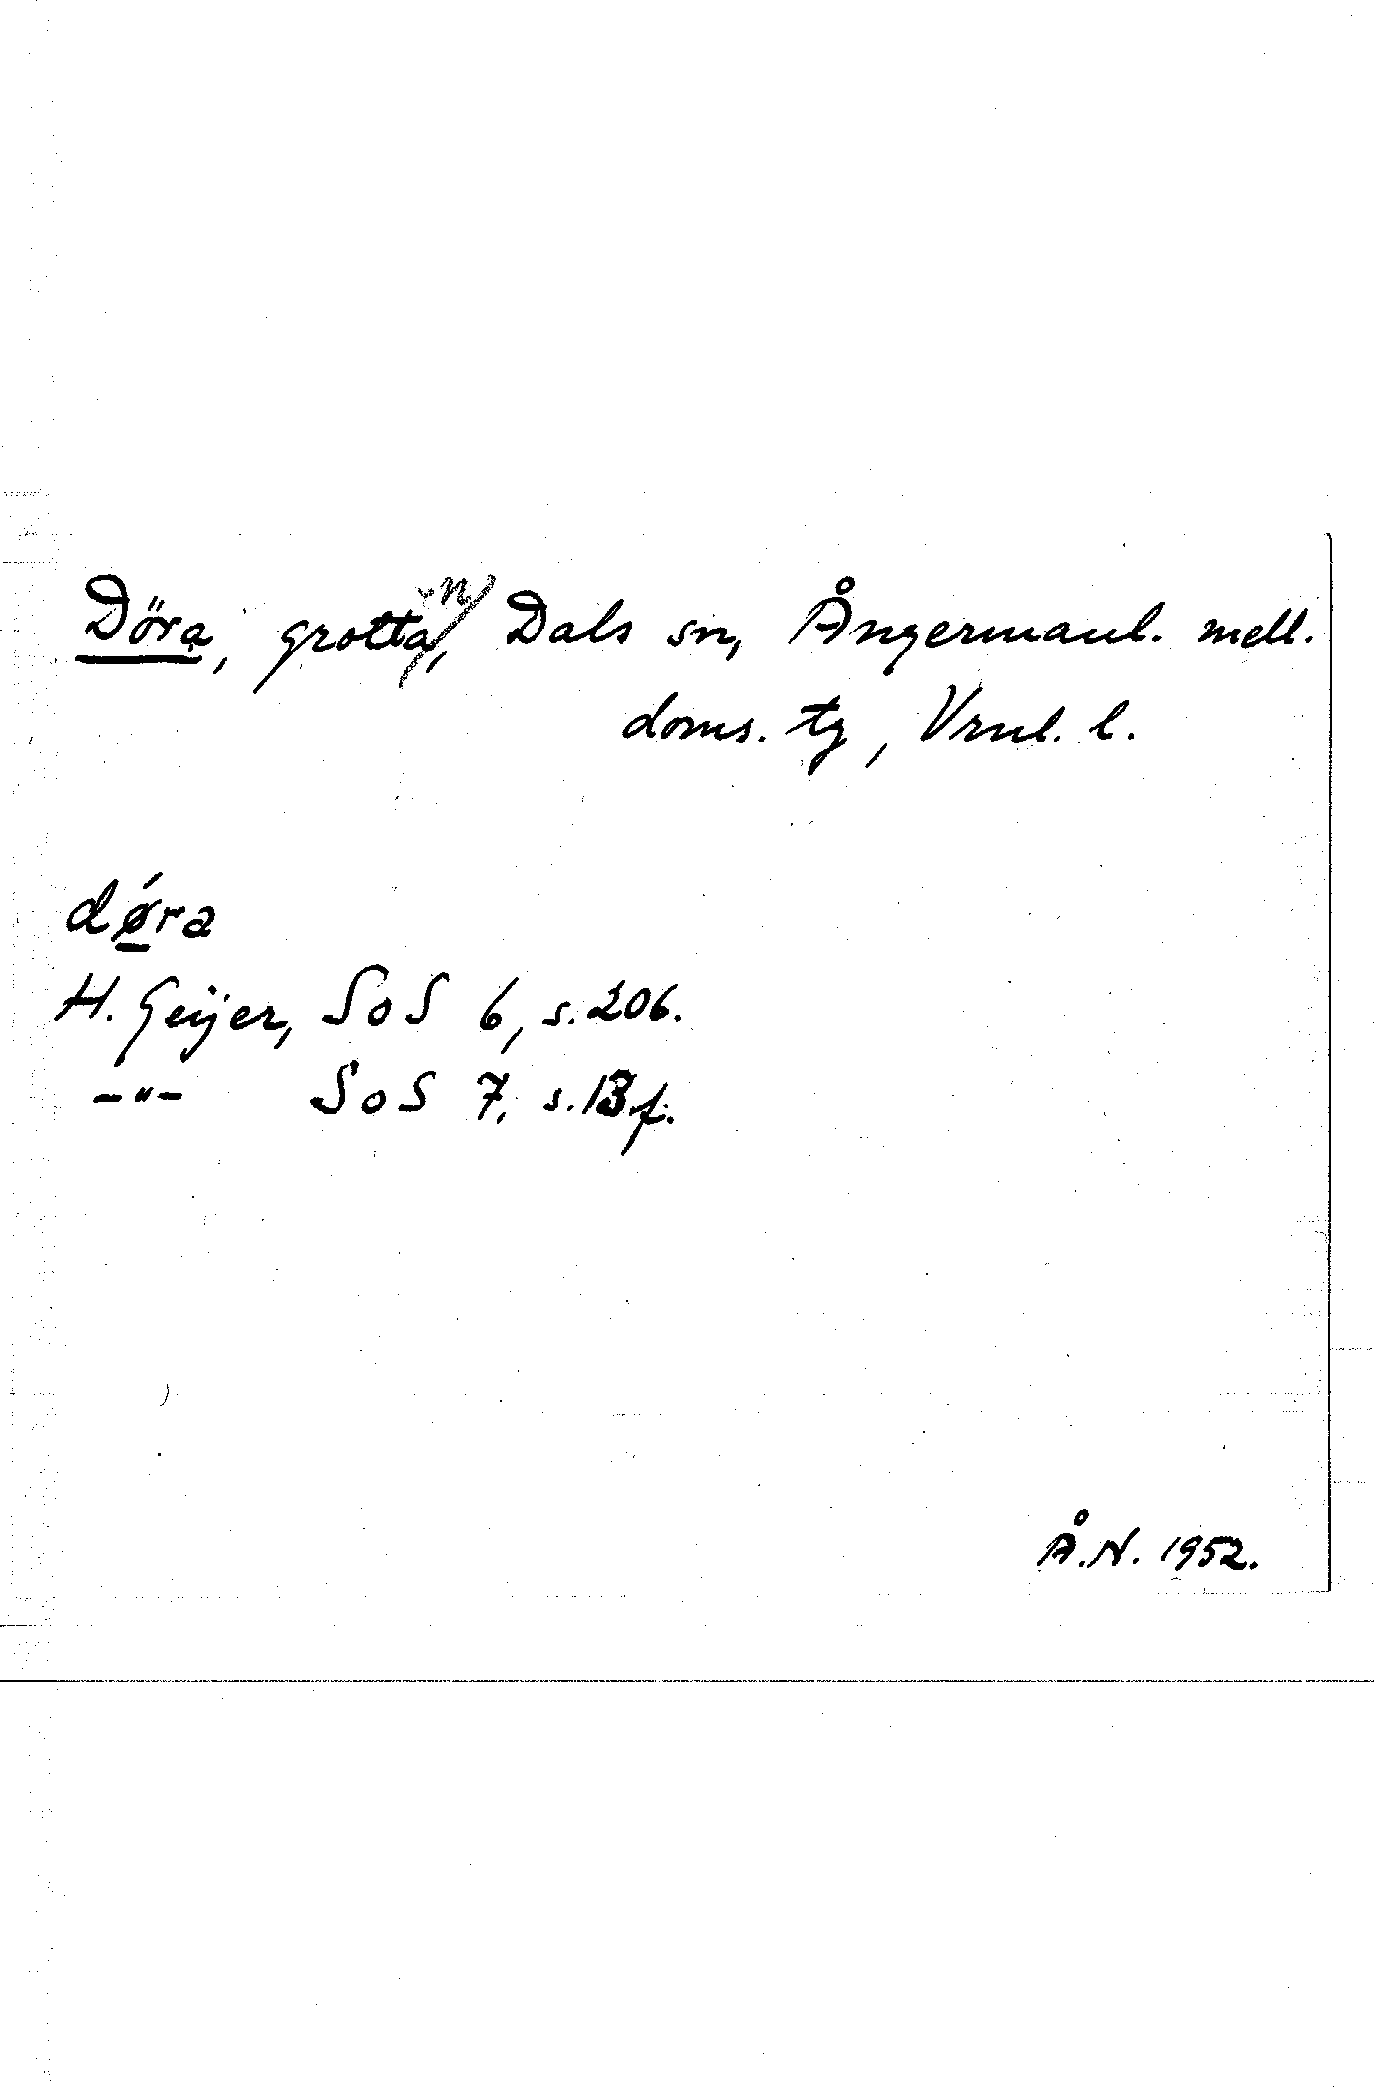 Döra, grottan, Dals sn, Ångermanl. mell.
doms. tg, Vrnl. l.
dǿra
H. Geijer, SoS 6, s. 206.
-"- SoS 7, s. 13 f.
Å.N. 1952.